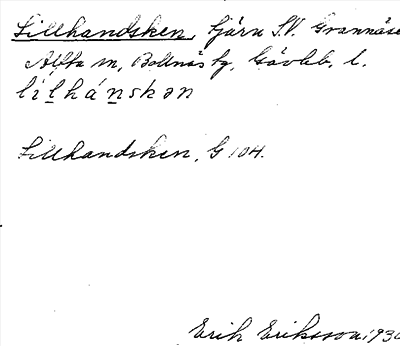 Lillhandsken, tjärn S.V. Grannäse
Alfta sn, Bollnäs tg, Gävleb. l.
lilhánskən
Lillhandsken, G 104.
Erik Eriksson, 193